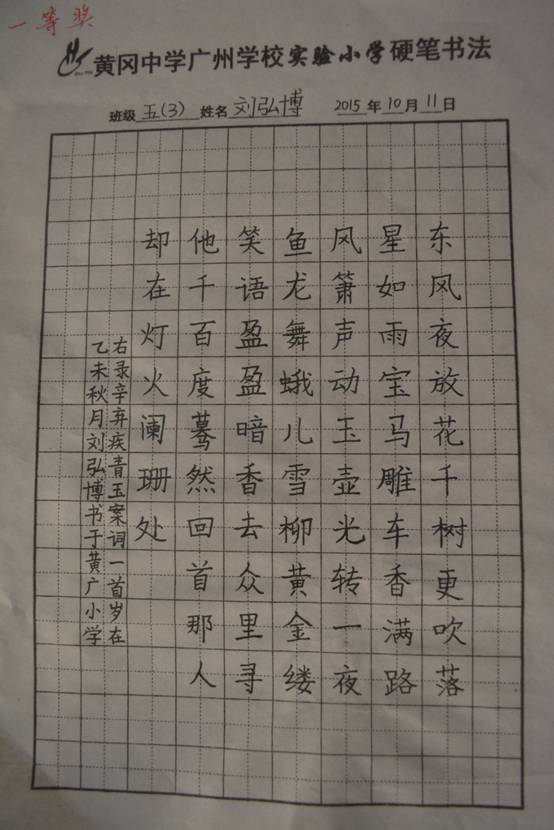 一等奖
黄冈中学广州学校实验小学硬笔书法
班级 五(3) 姓名 刘弘博 2015 年 10 月 11 日
东风夜放花千树更吹落
星如雨宝马雕车香满路
风箫声动玉壶光转一夜
鱼龙舞蛾儿雪柳黄金缕
笑语盈盈暗香去众里寻
他千百度蓦然回首那人
却在灯火阑珊处
右录辛弃疾青玉案词一首岁在
乙未秋月刘弘博书于黄广小学